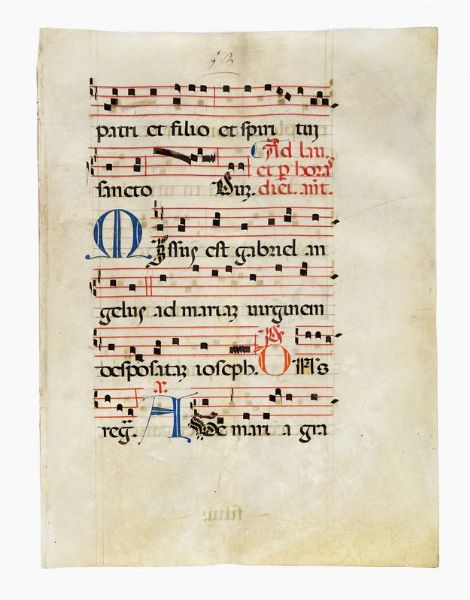 patri et filio et spiri tui
sancto Ad lau.
et p hora
dici. ant.
Missus est gabriel an
gelus ad mariam virginem
desposatam ioseph. Ors
reg. A ve mari a gra